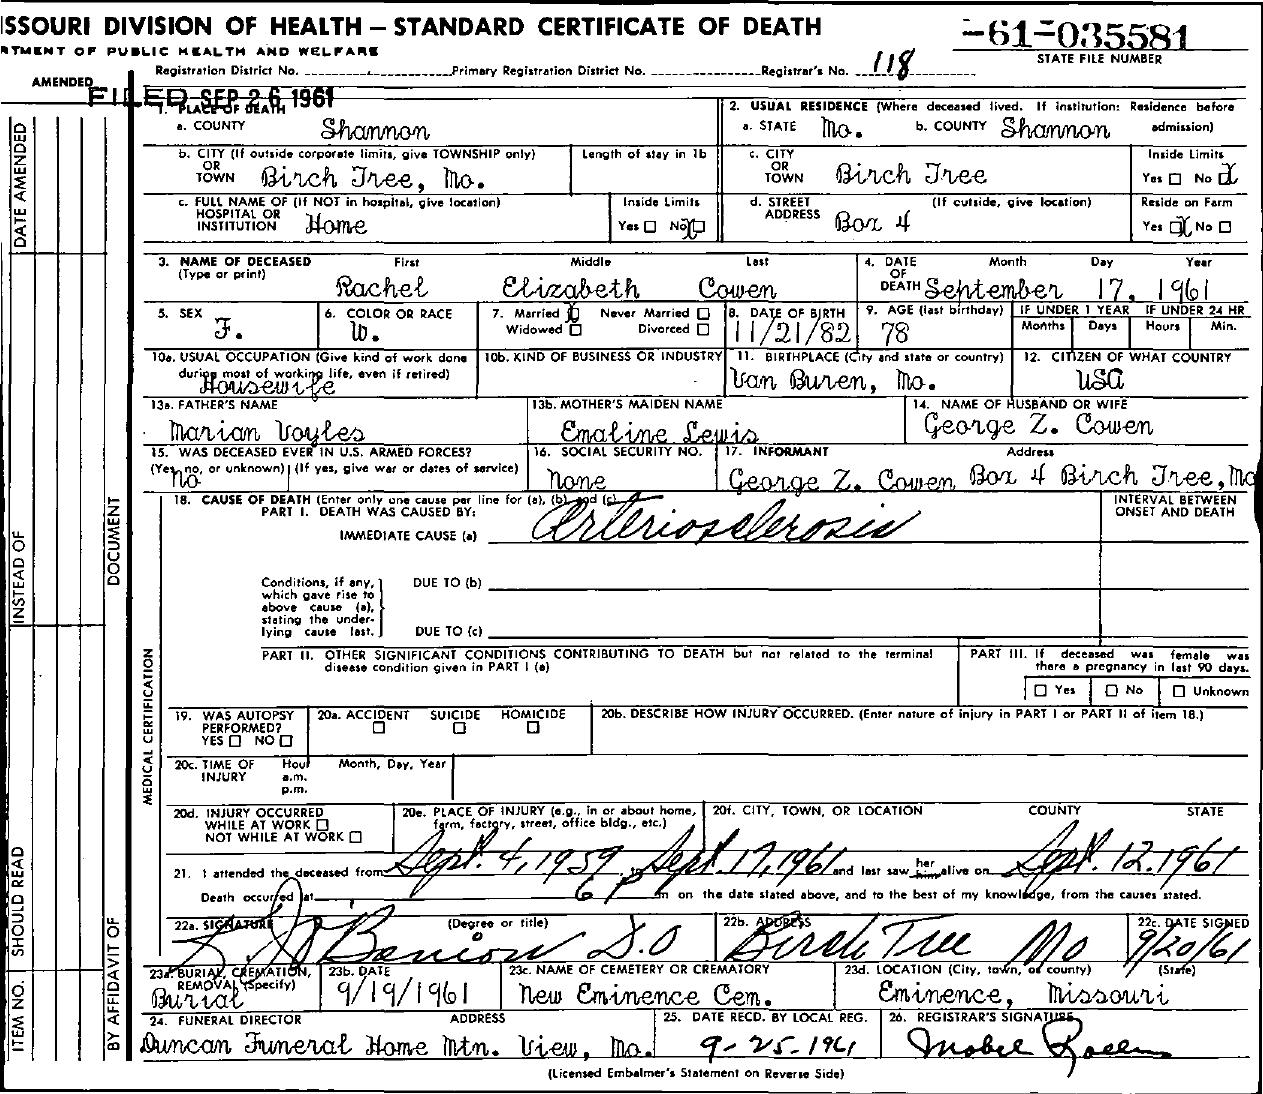 ISSOURI DIVISION OF HEALTH – STANDARD CERTIFICATE OF DEATH
-61-035581
RTMENT OF PUBLIC HEALTH AND WELFARE
STATE FILE NUMBER
Registration District No. Primary Registration District No. Registrar's No. 118
AMENDED
FILED SEP 26 1961
1. PLACE OF DEATH
a. COUNTY Shannon
2. USUAL RESIDENCE (Where deceased lived. If institution: Residence before admission)
a. STATE Mo. b. COUNTY Shannon
b. CITY (If outside corporate limits, give TOWNSHIP only) OR TOWN Birch Tree, Mo.
Length of stay in 1b
c. CITY OR TOWN Birch Tree
Inside Limits Yes □ No X
c. FULL NAME OF (If NOT in hospital, give location) HOSPITAL OR INSTITUTION Home
Inside Limits Yes □ No X
d. STREET ADDRESS (If outside, give location) Box 4
Reside on Farm Yes X No □
3. NAME OF DECEASED (Type or print) First Middle Last
Rachel Elizabeth Cowen
4. DATE OF DEATH Month Day Year
September 17, 1961
5. SEX F.
6. COLOR OR RACE W.
7. Married X Never Married □ Widowed □ Divorced □
8. DATE OF BIRTH 11/21/82
9. AGE (last birthday) 78
IF UNDER 1 YEAR Months Days
IF UNDER 24 HR Hours Min.
10a. USUAL OCCUPATION (Give kind of work done during most of working life, even if retired) Housewife
10b. KIND OF BUSINESS OR INDUSTRY
11. BIRTHPLACE (City and state or country) Van Buren, Mo.
12. CITIZEN OF WHAT COUNTRY USA
13a. FATHER'S NAME Marian Voyles
13b. MOTHER'S MAIDEN NAME Emaline Lewis
14. NAME OF HUSBAND OR WIFE George Z. Cowen
15. WAS DECEASED EVER IN U.S. ARMED FORCES? (Yes, no, or unknown) (If yes, give war or dates of service) No
16. SOCIAL SECURITY NO. None
17. INFORMANT Address
George Z. Cowen Box 4 Birch Tree, Mo
18. CAUSE OF DEATH (Enter only one cause per line for (a), (b), and (c)
PART I. DEATH WAS CAUSED BY:
IMMEDIATE CAUSE (a) Arteriosclerosis
INTERVAL BETWEEN ONSET AND DEATH
Conditions, if any, which gave rise to above cause (a), stating the underlying cause last.
DUE TO (b)
DUE TO (c)
PART II. OTHER SIGNIFICANT CONDITIONS CONTRIBUTING TO DEATH but not related to the terminal disease condition given in PART I (a)
PART III. If deceased was female was there a pregnancy in last 90 days.
□ Yes □ No □ Unknown
19. WAS AUTOPSY PERFORMED? YES □ NO □
20a. ACCIDENT □ SUICIDE □ HOMICIDE □
20b. DESCRIBE HOW INJURY OCCURRED. (Enter nature of injury in PART I or PART II of item 18.)
20c. TIME OF INJURY Hour a.m. p.m. Month, Day, Year
20d. INJURY OCCURRED WHILE AT WORK □ NOT WHILE AT WORK □
20e. PLACE OF INJURY (e.g., in or about home, farm, factory, street, office bldg., etc.)
20f. CITY, TOWN, OR LOCATION COUNTY STATE
21. I attended the deceased from Sept. 4, 1959 to Sept. 17, 1961 and last saw her him alive on Sept. 12. 1961
Death occurred at 6 P m on the date stated above, and to the best of my knowledge, from the causes stated.
22a. SIGNATURE (Degree or title) Benion D.O
22b. ADDRESS Birch Tree Mo
22c. DATE SIGNED 9/20/61
23a. BURIAL, CREMATION, REMOVAL (Specify) Burial
23b. DATE 9/19/1961
23c. NAME OF CEMETERY OR CREMATORY New Eminence Cem.
23d. LOCATION (City, town, or county) (State) Eminence, Missouri
24. FUNERAL DIRECTOR ADDRESS
Duncan Funeral Home Mtn. View, Mo.
25. DATE RECD. BY LOCAL REG. 9-25-1961
26. REGISTRAR'S SIGNATURE Mabel
(Licensed Embalmer's Statement on Reverse Side)
DATE AMENDED
INSTEAD OF
DOCUMENT
MEDICAL CERTIFICATION
SHOULD READ
ITEM NO.
BY AFFIDAVIT OF